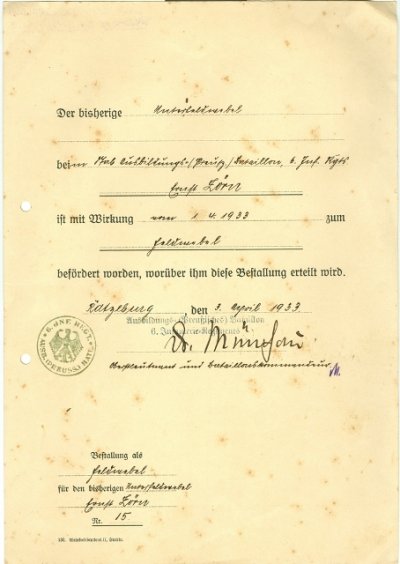 Der bisherige Unterfeldwebel
beim Stab Ausbildungs-/Preuß./Bataillon, 6. Inf. Rgts
Ernst Zörn
ist mit Wirkung vom 1.4.1933 zum
Feldwebel
befördert worden, worüber ihm diese Bestallung erteilt wird.
Ratzeburg, den 3. April 1933
Ausbildungs-(Preußisches) Bataillon
6. Infanterie-Regiments
6. INF. REGT.
Oberstleutnant und Bataillonskommandeur
Bestallung als
Feldwebel
für den bisherigen Unterfeldwebel
Ernst Zörn
Nr. 15